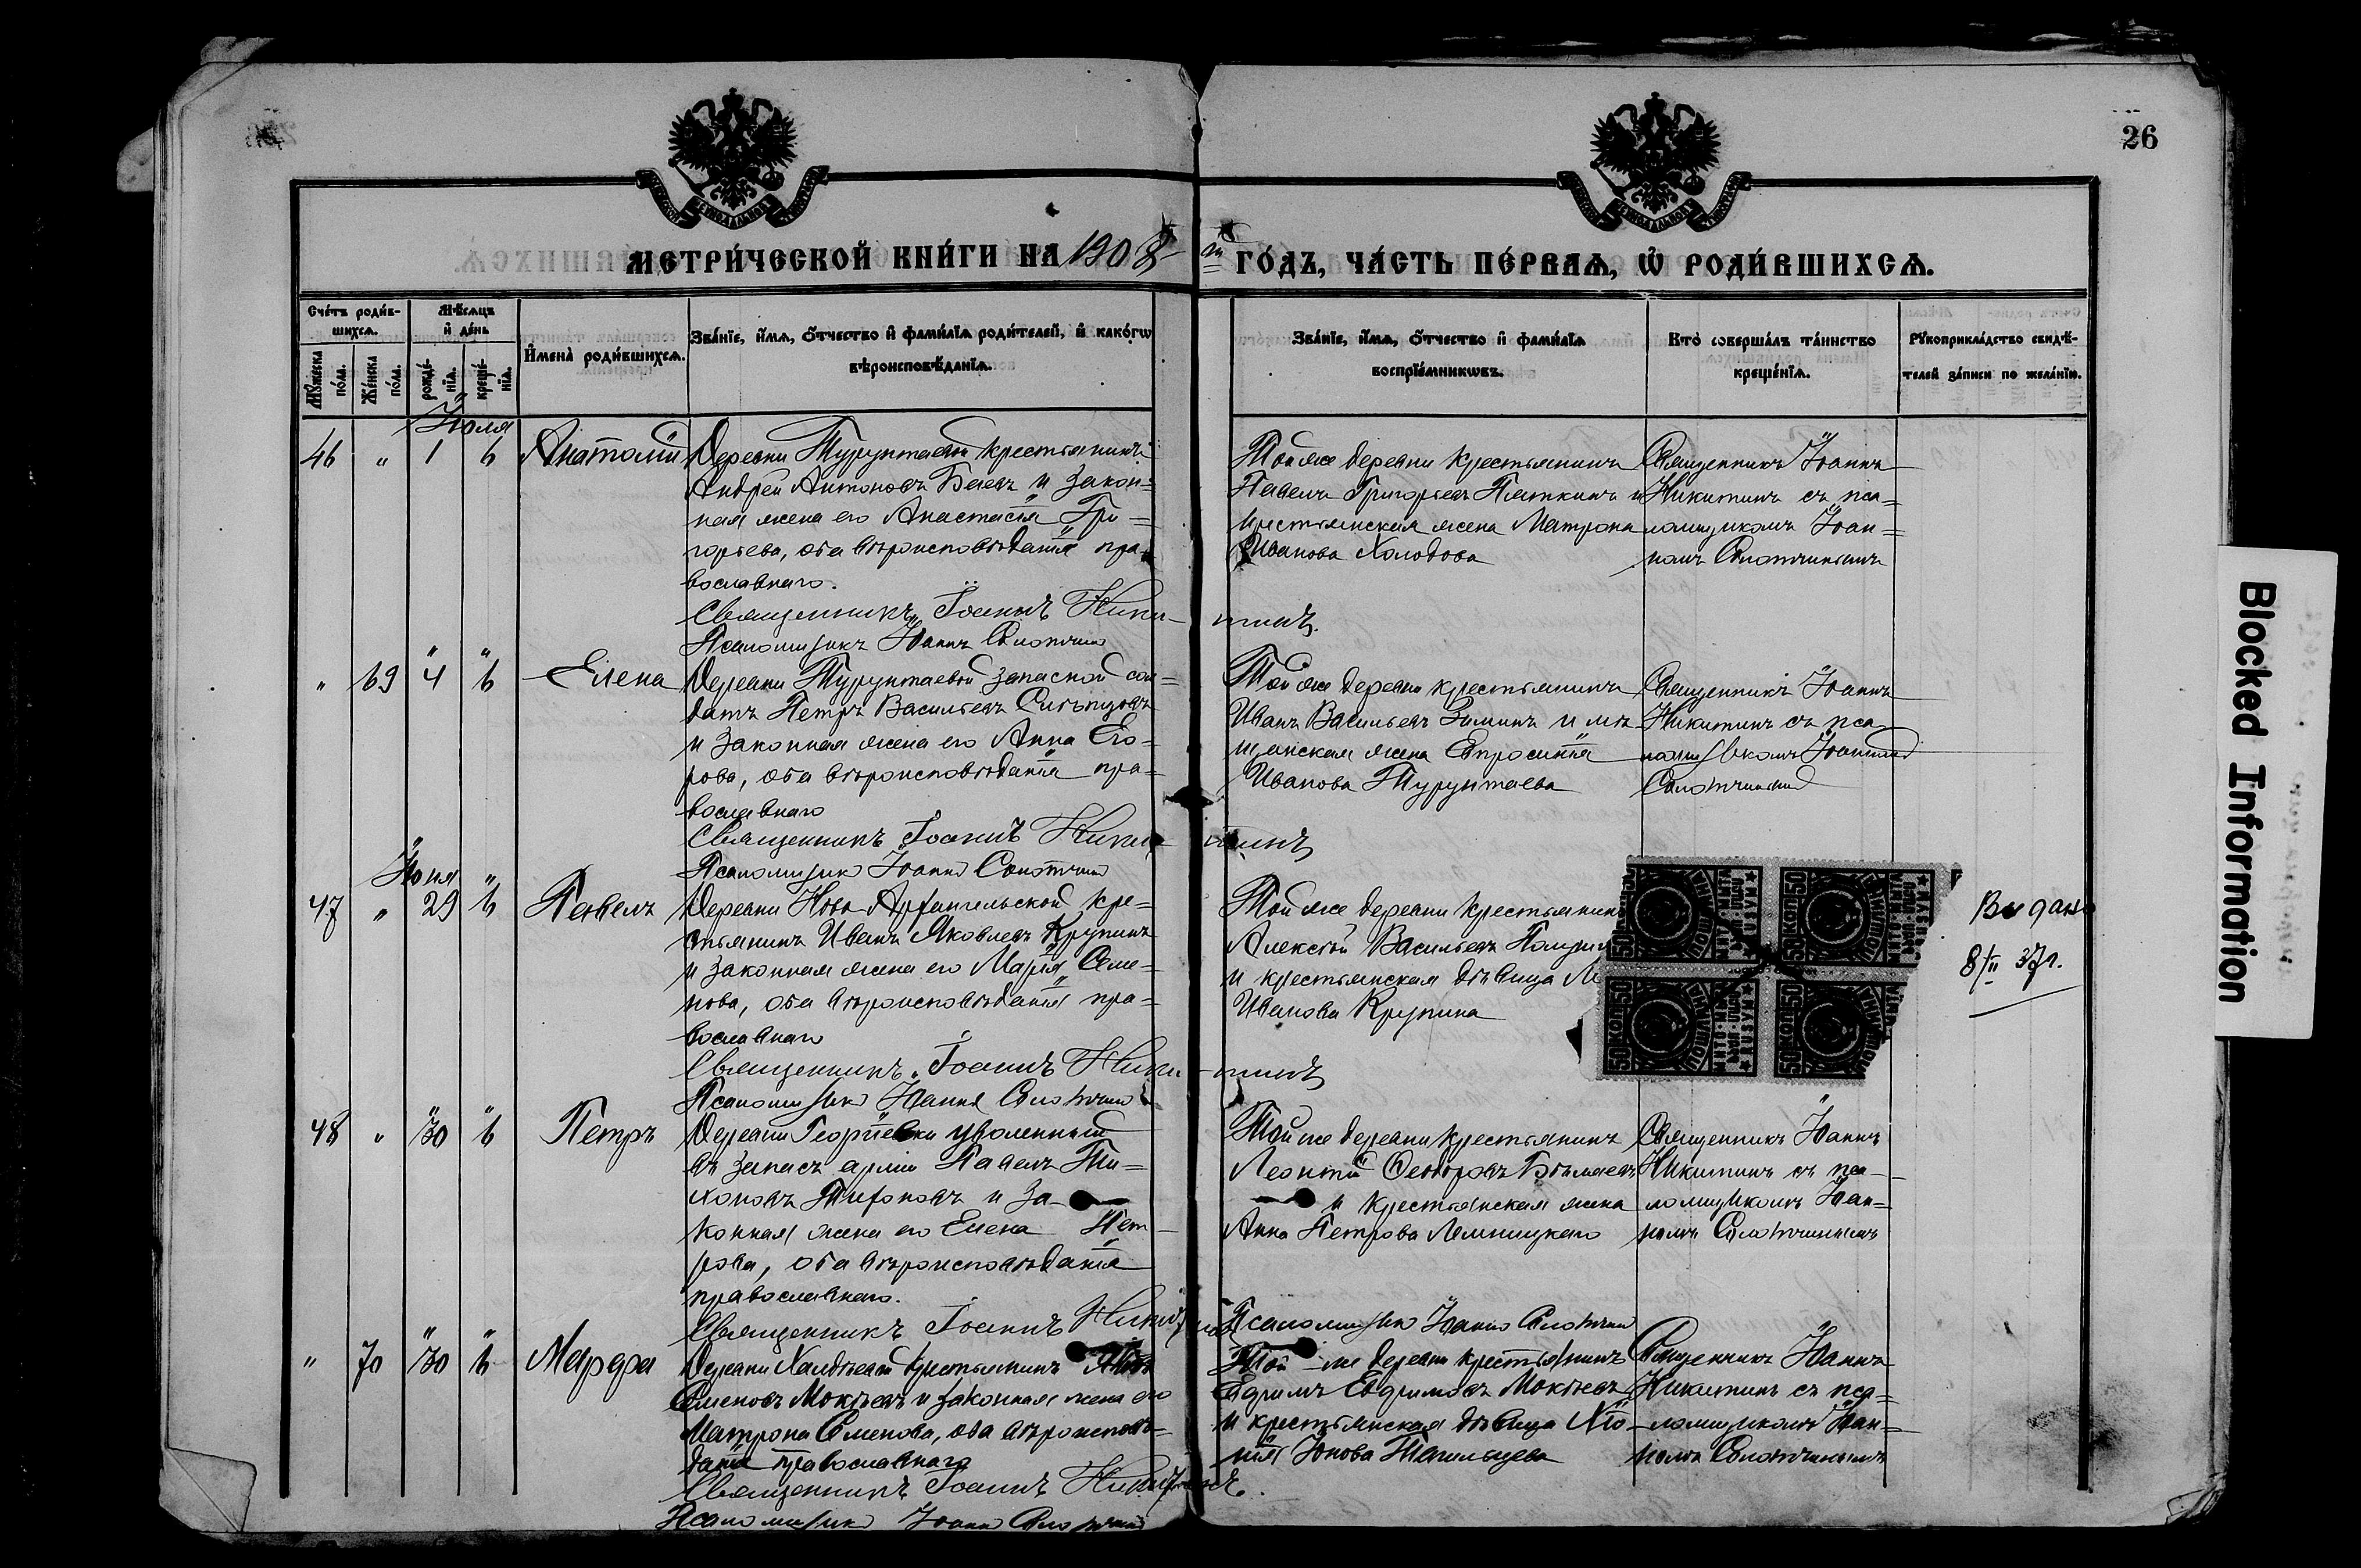 26
МЕТРИ́ЧЕСКОЙ КНИ́ГИ НА 1908-й ГО́ДЪ, ЧА́СТЬ ПЕ́РВАѦ, Ѡ҆ РОДИ́ВШИХСѦ.
Сче́тъ роди́в-
шихсѧ.
Мѣ́сѧцъ
и҆ де́нь
Мꙋ́жеска по́ла.
Же́нска по́ла.
рожде́-нїѧ.
креще́-нїѧ.
И҆мена̀ роди́вшихсѧ.
Зва́нїе, и҆́мѧ, ѻ҆́тчество и҆ фами́лїѧ роди́телей, и҆ како́гѡ
вѣроисповѣ́данїѧ.
Зва́нїе, и҆́мѧ, ѻ҆́тчество и҆ фами́лїѧ
воспрїе́мникѡвъ.
Кто̀ соверша́лъ та́инство
креще́нїѧ.
Рꙋкоприкла́дство свидѣ́-
телей за́писи по жела́нїю.
Іюля
46 " 1 6 Анатолій
Деревни Турунтаевой крестьянинъ
Андрей Антоновъ Беевъ и закон=
ная жена его Анастасія Гри=
горьева, оба вѣроисповѣданія пра=
вославнаго.
Священникъ Іоаннъ Никитинъ.
Псаломщикъ Іоаннъ
Той же деревни крестьянинъ
Павелъ Григорьевъ Пяткинъ и
крестьянская жена Матрона
Иванова Холодова
Священникъ Іоаннъ
Никитинъ съ пса=
ломщикомъ Іоан=
номъ
" 69 4 6 Елена
Деревни Турунтаевой запасной сол=
датъ Петръ Васильевъ
и законная жена его Анна Его=
рова, оба вѣроисповѣданія пра=
вославнаго
Священникъ Іоаннъ Никитинъ
Псаломщикъ Іоаннъ
Той же деревни крестьянинъ
Иванъ Васильевъ Зиминъ и мѣ
щанская жена Евпросинія
Иванова Турунтаева
Священникъ Іоаннъ
Никитинъ съ пса
ломщикомъ Іоанномъ
Іюня
47 " 29 6 Павелъ
Деревни Ново-Архангельской кре=
стьянинъ Иванъ Яковлевъ Крупинъ
и законная жена его Марія Семе=
нова, оба вѣроисповѣданія пра=
вославнаго
Священникъ Іоаннъ Никитинъ
Псаломщикъ Іоаннъ
Той же деревни крестьянинъ
Алексѣй Васильевъ
и крестьянская дѣвица
Иванова Крупина
50 КОП 50
50 КОП 50
50 КОП 50
50 КОП 50
Выдано
8/II 37г.
48 " 30 6 Петръ
Деревни Георгіевки уволенный
въ запасъ арміи Павелъ Ти=
хоновъ Тифоновъ и за-
конная жена его Елена Пет-
рова, оба вѣроисповѣданія
православнаго.
Священникъ Іоаннъ Никитинъ
Псаломщикъ Іоаннъ
Той же деревни крестьянинъ
Леонтій Ѳеодоровъ Бѣляевъ
и крестьянская жена
Анна Петрова
Священникъ Іоаннъ
Никитинъ съ пса-
ломщикомъ Іоан=
номъ
" 70 30 6 Марфа
Деревни Халдѣевой крестьянинъ
Семеновъ Мокѣевъ и законная жена его
Матрона Семенова, оба вѣроисповѣ=
данія православнаго
Священникъ Іоаннъ Никитинъ.
Псаломщикъ Іоаннъ
Той-же деревни крестьянинъ
Евдокимовъ Мокѣевъ
и крестьянская дѣвица
Іонова
Священникъ Іоаннъ
Никитинъ съ пса=
ломщикомъ Іоан=
номъ
Blocked Information